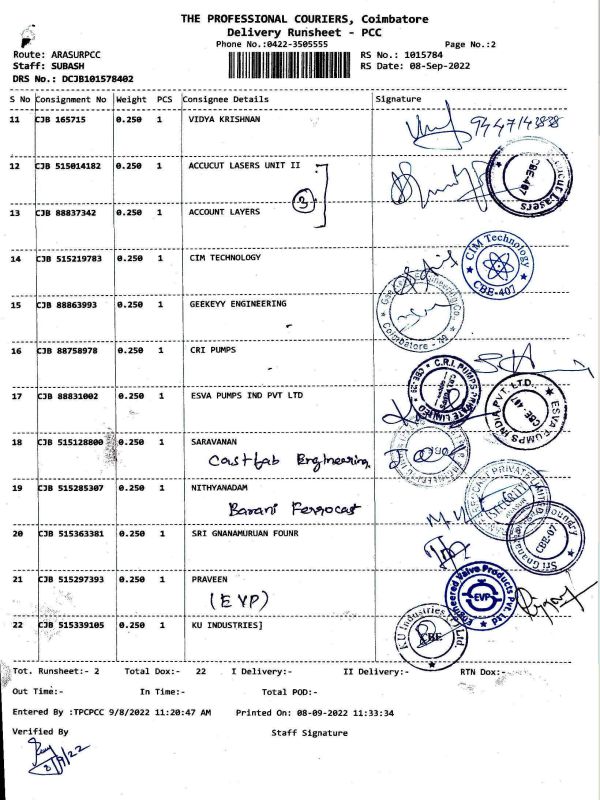 THE PROFESSIONAL COURIERS, Coimbatore
Delivery Runsheet - PCC
Phone No.:0422-3505555
Page No.:2
Route: ARASURPCC
RS No.: 1015784
Staff: SUBASH
RS Date: 08-Sep-2022
DRS No.: DCJB101578402
S No Consignment No Weight PCS Consignee Details Signature
11 CJB 165715 0.250 1 VIDYA KRISHNAN
12 CJB 515014182 0.250 1 ACCUCUT LASERS UNIT II
CBE-407
3
13 CJB 88837342 0.250 1 ACCOUNT LAYERS
14 CJB 515219783 0.250 1 CIM TECHNOLOGY
CIM Technology
CBE-407
15 CJB 88863993 0.250 1 GEEKEYY ENGINEERING
Coimbatore
16 CJB 88758978 0.250 1 CRI PUMPS
C.R.I. PUMPS PRIVATE LIMITED
17 CJB 88831002 0.250 1 ESVA PUMPS IND PVT LTD
ESVA PUMPS INDIA PVT. LTD.
CBE-407
18 CJB 515128800 0.250 1 SARAVANAN
Castfab Engineering
19 CJB 515285307 0.250 1 NITHYANADAM
Barani Ferrocast
PRIVATE LIMITED
20 CJB 515363381 0.250 1 SRI GNANAMURUAN FOUNR
CBE-07
21 CJB 515297393 0.250 1 PRAVEEN
(EVP)
Engineered Valve Products Pvt Ltd
EVP
22 CJB 515339105 0.250 1 KU INDUSTRIES]
KU Industries
CBE
Tot. Runsheet:- 2 Total Dox:- 22 I Delivery:- II Delivery:- RTN Dox:-
Out Time:- In Time:- Total POD:-
Entered By :TPCPCC 9/8/2022 11:20:47 AM Printed On: 08-09-2022 11:33:34
Verified By Staff Signature
8/9/22